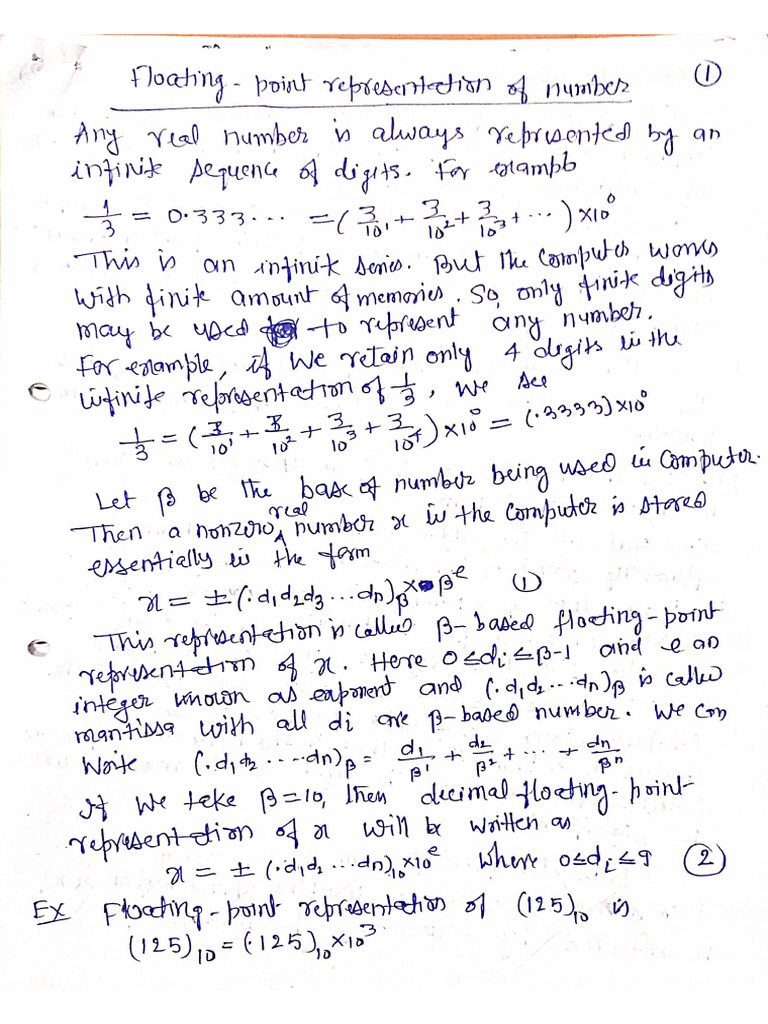 Floating-point representation of number ①
Any real number is always represented by an
infinite sequence of digits. For example
1/3 = 0.333... = (3/10^1 + 3/10^2 + 3/10^3 + ...) ×10^0
This is an infinite series. But the computer works
with finite amount of memories. So, only finite digits
may be used to represent any number.
For example, if we retain only 4 digits in the
infinite representation of 1/3, we see
1/3 = (3/10^1 + 3/10^2 + 3/10^3 + 3/10^4) ×10^0 = (.3333)×10^0
Let β be the base of number being used in computer.
Then a nonzero real number x in the computer is stored
essentially in the form
x = ± (.d1d2d3 ...dn)_β × β^e ①
This representation is called β-based floating-point
representation of x. Here 0≤di≤β-1 and e an
integer known as exponent and (.d1d2...dn)_β is called
mantissa with all di are β-based number. We can
write (.d1d2....dn)_β = d1/β^1 + d2/β^2 + ... + dn/β^n
If we take β=10, then decimal floating-point-
representation of x will be written as
x = ± (.d1d2 ...dn)_10 ×10^e where 0≤di≤9 ②
Ex Floating-point representation of (125)_10 is
(125)_10 = (.125)_10 ×10^3